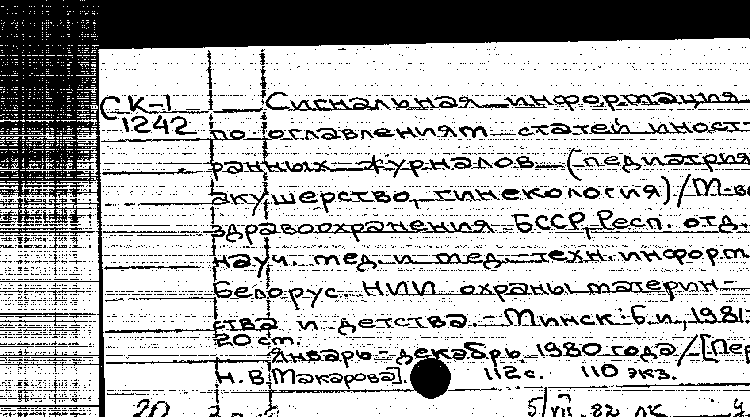 СК-1 Сигнальная информация
1242 по оглавлениям статей иност-
ранных журналов (педиатрия,
акушерство, гинекология)/М-во
здравоохранения БССР, Респ. отд.
науч. мед. и мед.-техн. информ.
Белорус. НИИ охраны материн-
ства и детства. - Минск: Б.и., 1981.
20 см.
Январь - декабрь 1980 года/[Пер
Н.В. Макарова]. 112 с. 110 экз.
20 5/VII.82 лк